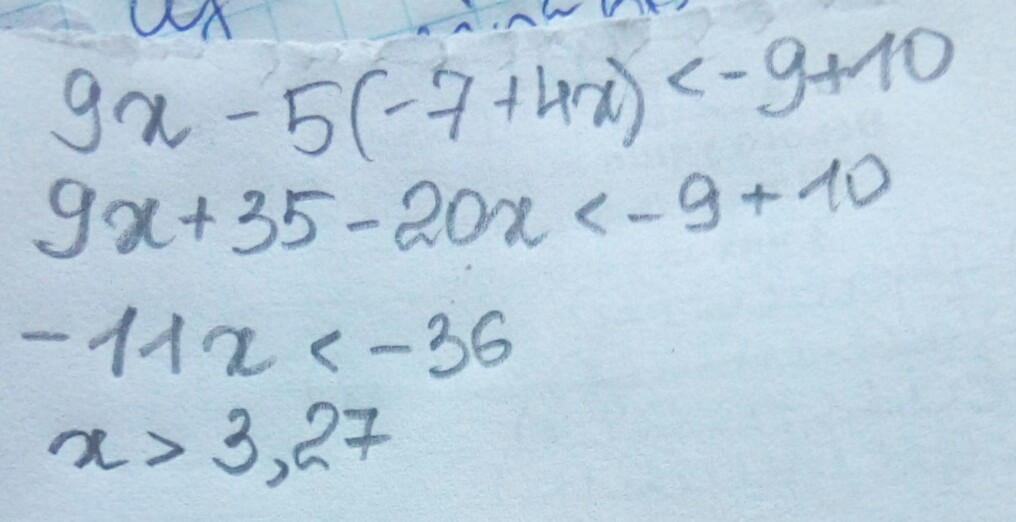 9x - 5(-7+4x) < -9+10
9x+35-20x < -9+10
-11x < -36
x > 3,27